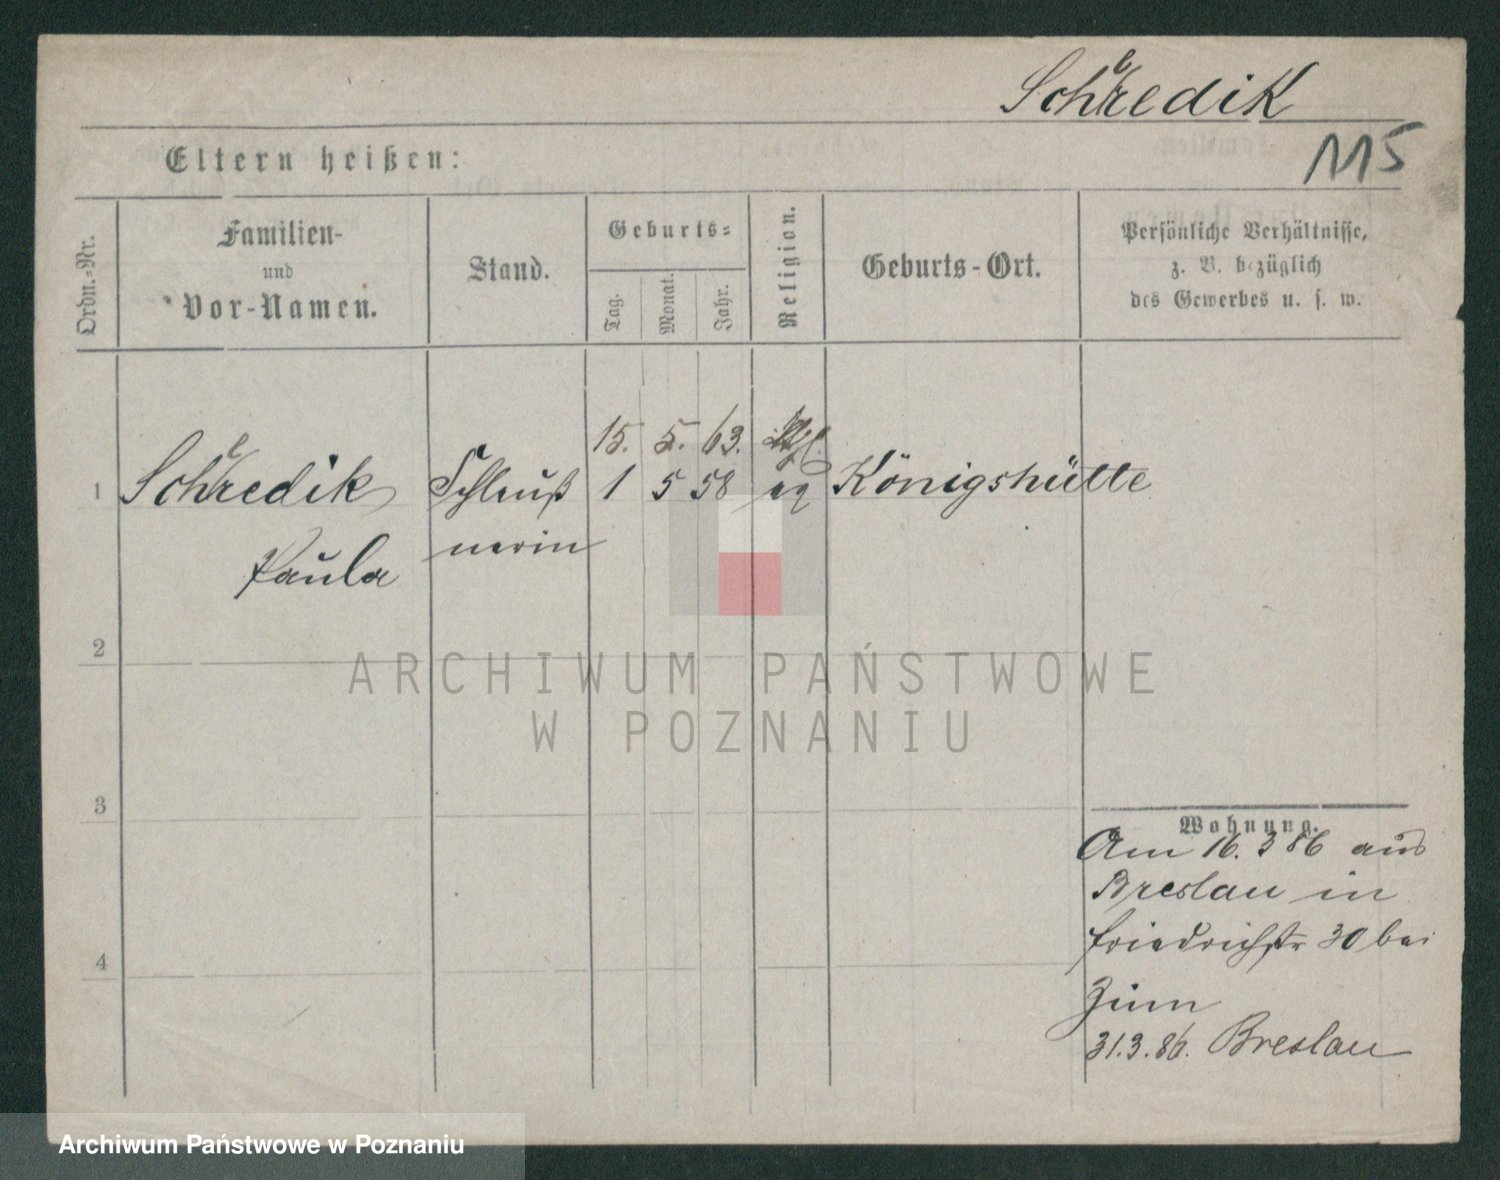 Schredik
115
Eltern heißen:
Ordn.-Nr.
Familien-
und
Vor-Namen.
Stand.
Geburts-
Tag.
Monat.
Jahr.
Religion.
Geburts-Ort.
Persönliche Verhältnisse,
z. B. bezüglich
des Gewerbes u. s. w.
15. 5. 63.
1 Schredik 1 5 58 Königshütte
nerin
Paula
2
ARCHIWUM PAŃSTWOWE
W POZNANIU
3
Wohnung.
Am 16. 3 86 aus
Breslau in
Friedrichstr 30 bei
4
31.3.86. Breslau
Archiwum Państwowe w Poznaniu